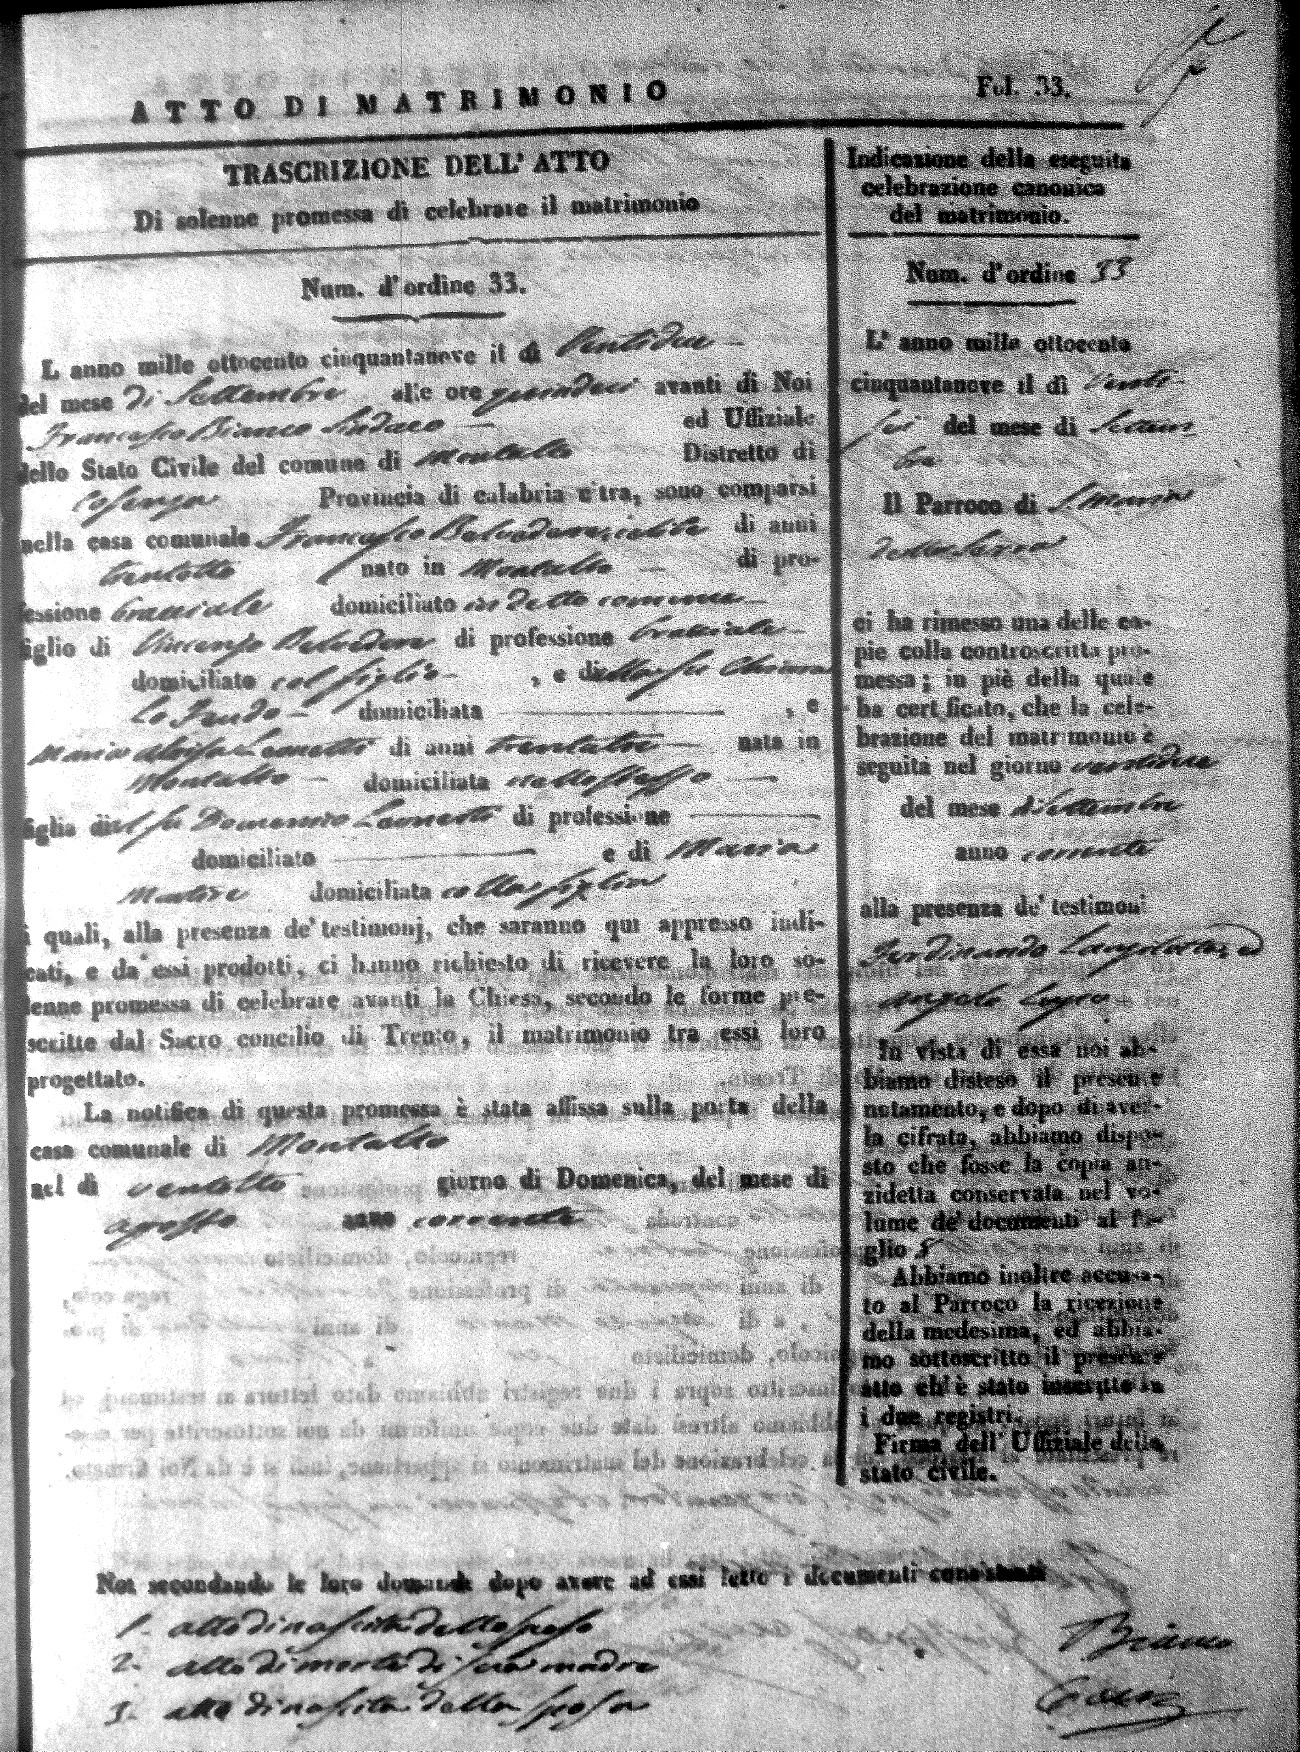 ATTO DI MATRIMONIO
Fol. 33.
TRASCRIZIONE DELL' ATTO
Di solenne promessa di celebrare il matrimonio
Num. d'ordine 33.
L anno mille ottocento cinquantanove il di Ventidue
del mese di Settembre alle ore quindeci avanti di Noi
Francesco Bianco Sindaco ed Uffiziale
dello Stato Civile del comune di Montalto Distretto di
Cosenza Provincia di calabria citra, sono comparsi
nella casa comunale Francesco di anni
trentotto nato in Montalto di pro-
fessione bracciale domiciliato in detto comune
figlio di Vincenzo Belvedere di professione bracciale
domiciliato col figlio , e della fu Chiara
Lo Prudo domiciliata , e
Maria di anni trentatre nata in
Montalto domiciliata nello stesso
figlia del fu Domenico di professione
domiciliato e di Maria
domiciliata colla figlia
i quali, alla presenza de' testimonj, che saranno qui appresso indi-
cati, e da essi prodotti, ci hanno richiesto di ricevere la loro so-
lenne promessa di celebrare avanti la Chiesa, secondo le forme pre-
scritte dal Sacro concilio di Trento, il matrimonio tra essi loro
progettato.
La notifica di questa promessa è stata affissa sulla porta della
casa comunale di Montalto
nel di ventotto giorno di Domenica, del mese di
agosto anno corrente
Indicazione della eseguita
celebrazione canonica
del matrimonio.
Num. d'ordine 33
L' anno mille ottocento
cinquantanove il dì venti-
sei del mese di Settem-
bre
Il Parroco di S. Maria
della Serra
ci ha rimesso una delle co-
pie colla controscritta pro-
messa; in piè della quale
ha certificato, che la cele-
brazione del matrimonio è
seguita nel giorno ventidue
del mese di Settembre
anno corrente
alla presenza de' testimoni
Ferdinando ed
Angelo
In vista di essa noi ab-
biamo disteso il presente
notamento, e dopo di aver-
la cifrata, abbiamo dispo-
sto che fosse la copia an-
zidetta conservata nel vo-
lume de' documenti al fo-
glio 5
Abbiamo inoltre accusa-
to al Parroco la ricezione
della medesima, ed abbia-
mo sottoscritto il presente
atto ch' è stato inscritto in
i due registri.
Firma dell' Uffiziale dello
stato civile.
Noi secondando le loro domande dopo avere ad essi letto i documenti consistenti
1. atto di nascita dello sposo
2. atto di morte di sua madre
3. atto di nascita della sposa
Bianco